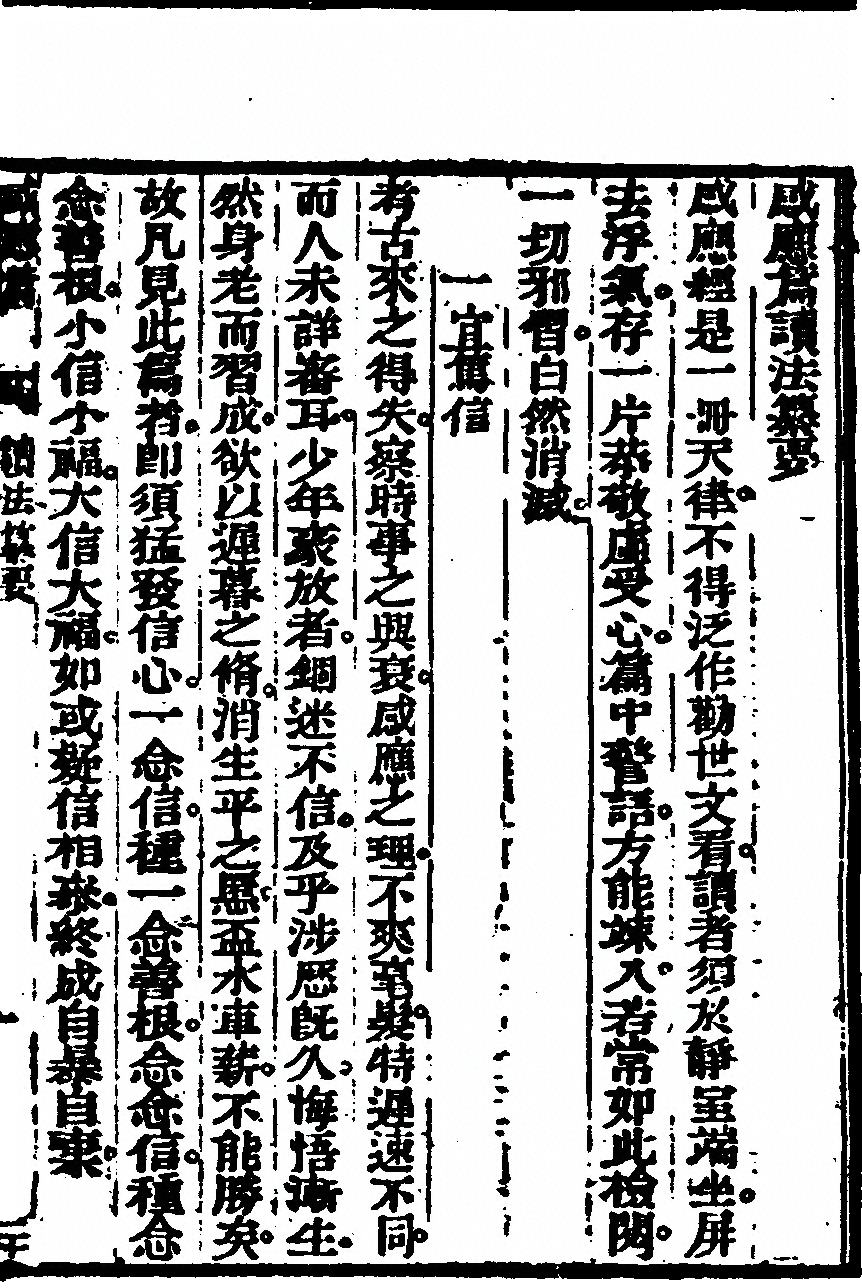 感應篇讀法纂要
感應經是一冊天律不得泛作勸世文看讀者須於靜室端坐屏
去浮氣存一片恭敬虛受心篇中警語方能竦入若常如此檢閱
一切邪習自然消滅
一宜篤信
考古來之得失察時事之興衰感應之理不爽毫髮特遲速不同
而人未詳審耳少年豪放者錮迷不信及乎涉歷既久悔悟漸生
然身老而習成欲以遲暮之脩消生平之慝盃水車薪不能勝矣
故凡見此篇者即須猛發信心一念信種一念善根念念信種念
念善根小信小福大信大福如或疑信相參終成自暴自棄
感應篇 讀法纂要 一